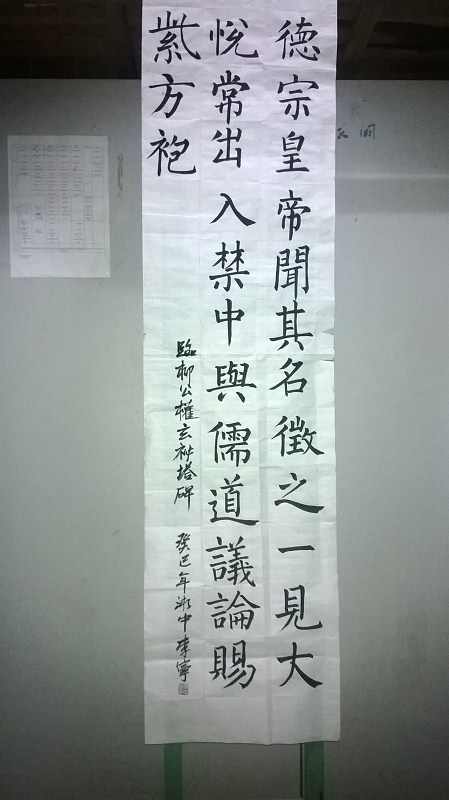 德宗皇帝聞其名徵之一見大
悅常出入禁中與儒道議論賜
紫方袍
臨柳公權玄祕塔碑 癸巳年 中李寧